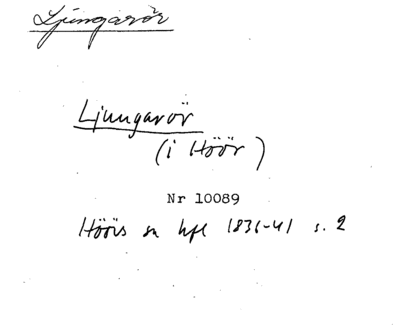 Ljungarör
Ljungarör
(i Höör)
Nr 10089
Höörs sn hfl 1836-41 s. 2